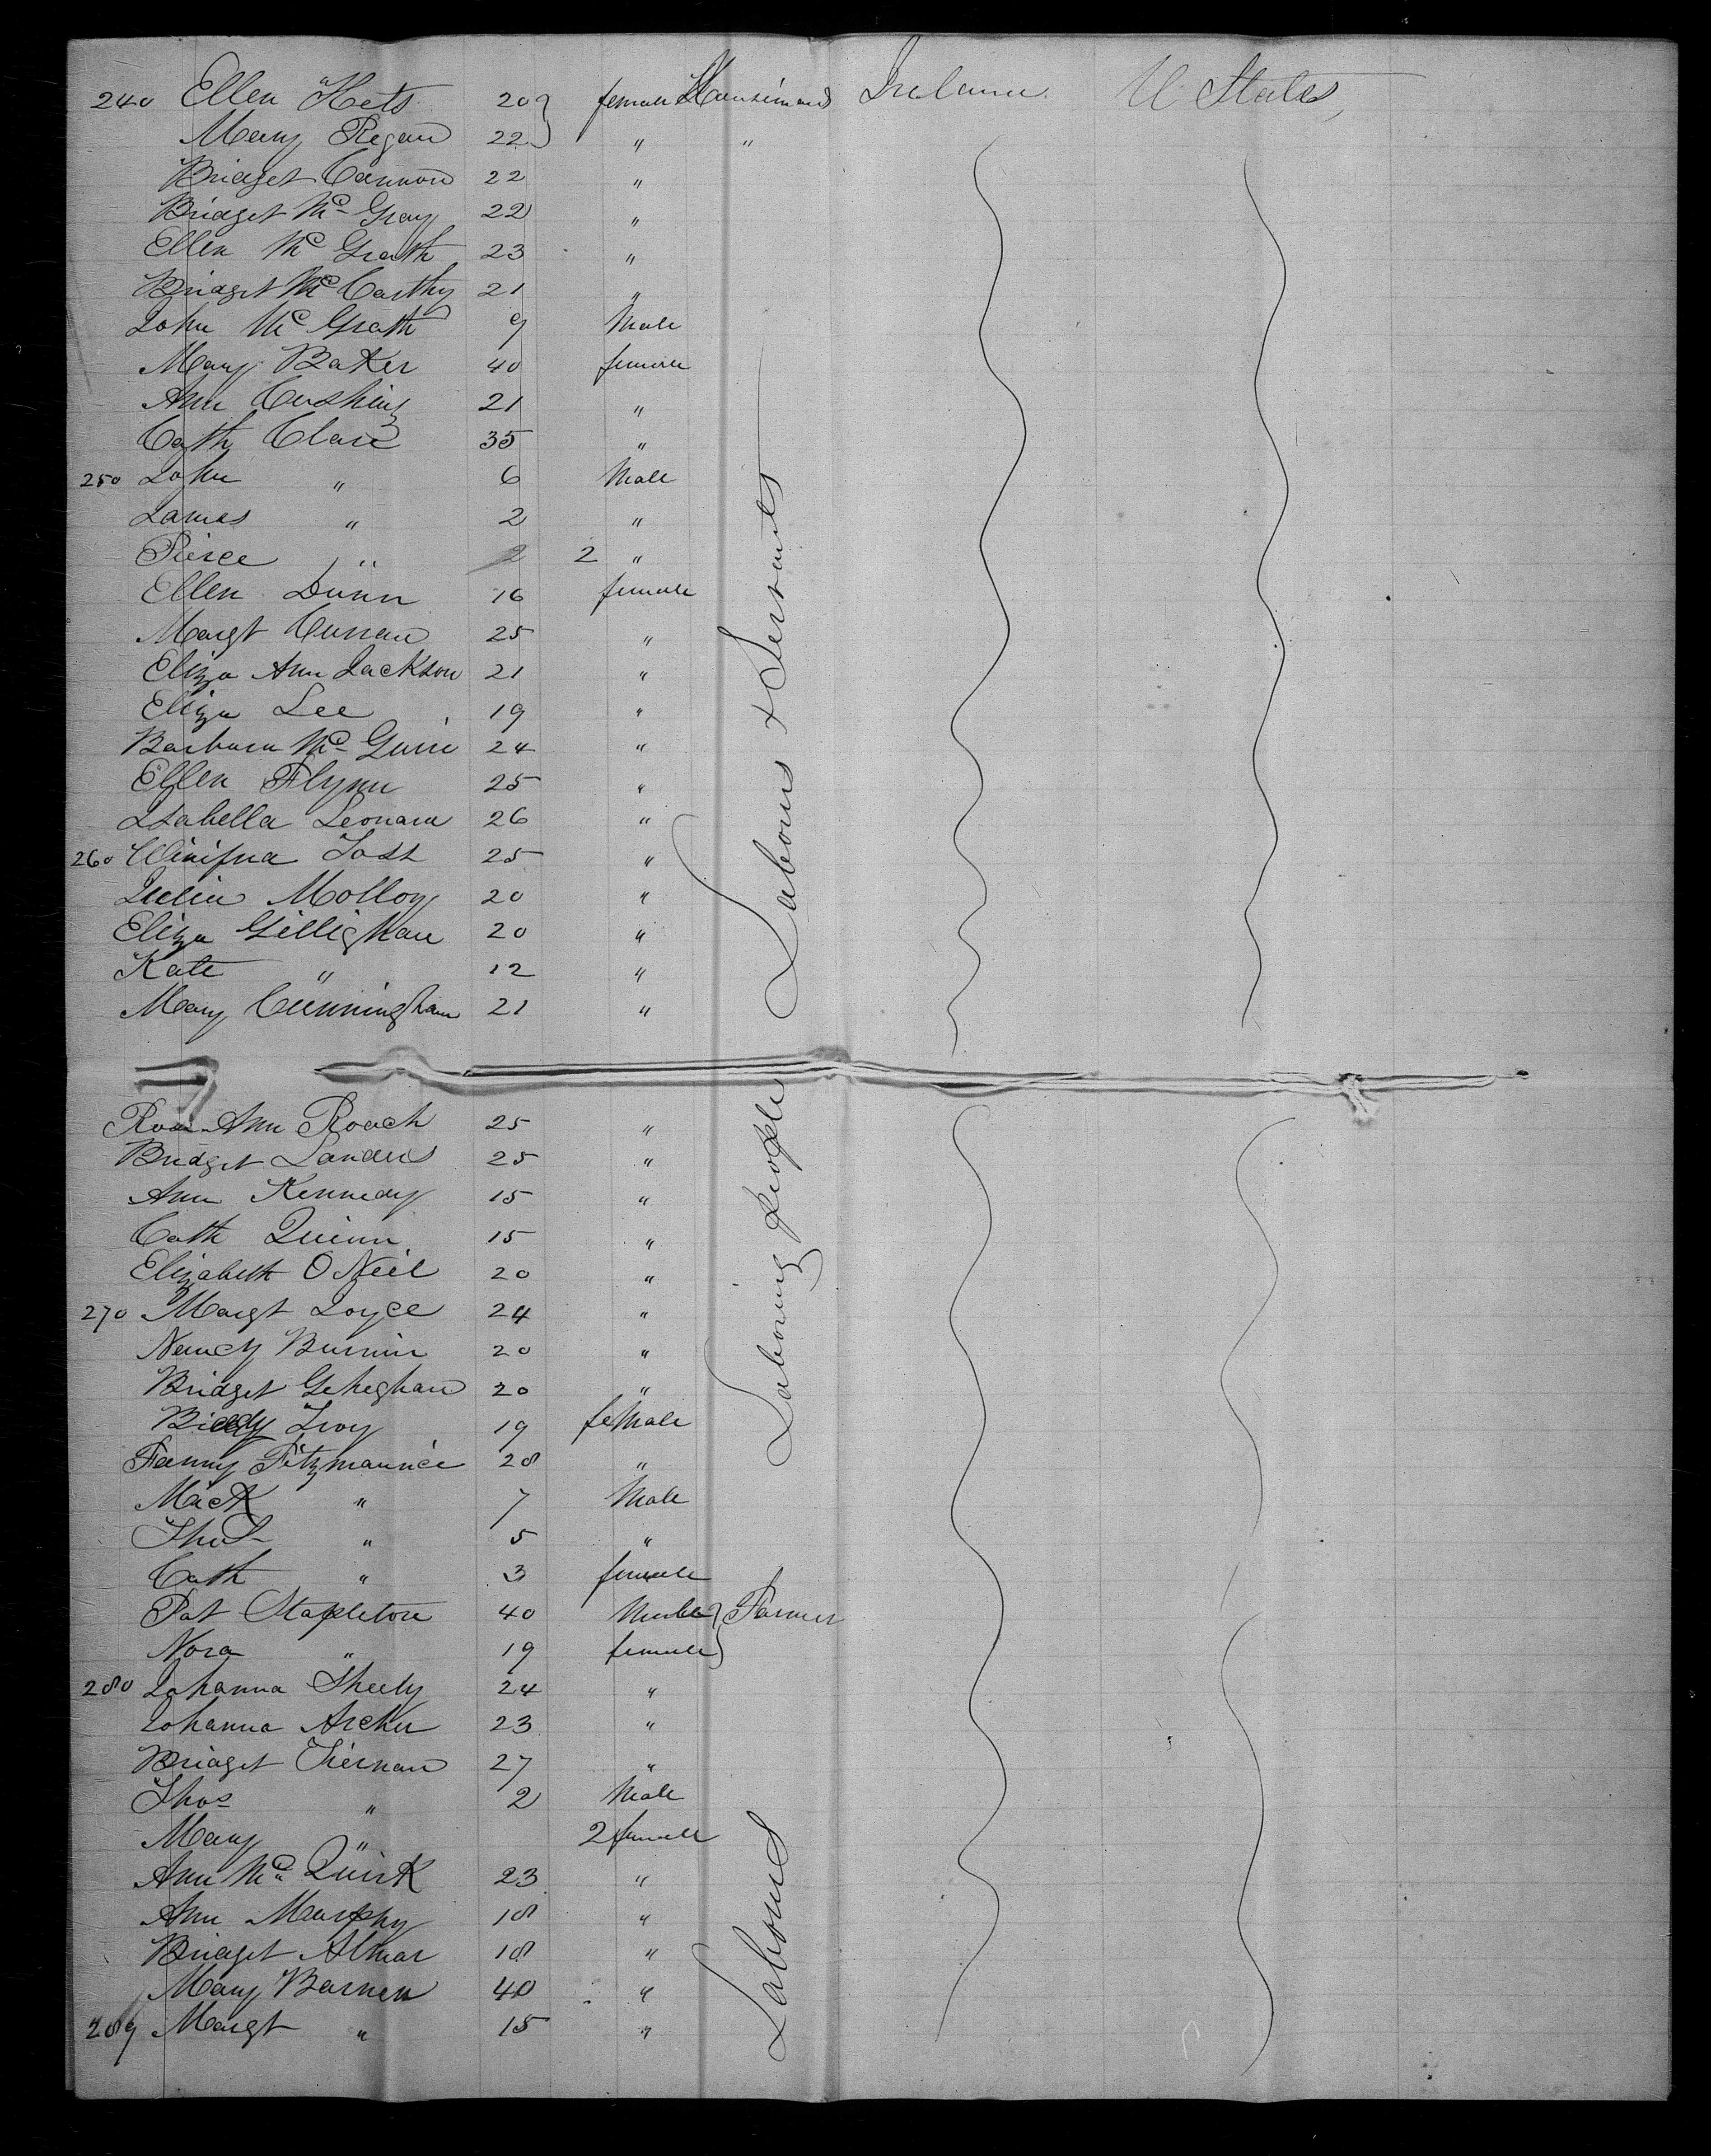 240 Ellen Hets 20 } female Housemaid Ireland U States,
Mary Regan 22 } " "
Bridget Cannon 22 "
Bridget Mc Gray 22 "
Ellen Mc Grath 23 "
Bridget Mc Carthy 21 "
John Mc Grath 9 Male
Mary Baker 40 female
Ann Cushing 21 "
Cath Clare 35 "
250 John " 6 Male
James " 2 "
Pierce " 2 2 "
Ellen Dunn 16 female
Margt Curran 25 "
Eliza Ann Jackson 21 "
Eliza Lee 19 "
Barbara Mc Guire 24 "
Ellen Flynn 25 "
Isabella Leonard 26 "
260 Winifred 25 "
Julia Molloy 20 "
Eliza Gillighan 20 "
Kate " 12 "
Mary Cunningham 21 "
Labours & Servants
Rose Ann Roach 25 "
Bridget Landers 25 "
Ann Kennedy 15 "
Cath Quinn 15 "
Elizabeth O Neil 20 "
270 Margt Joyce 24 "
Nancy 20 "
Bridget Geheghan 20 "
Biddy Ivoy 19 feMale
Fanny Fitzmaurice 28 "
Mick " 7 Male
Thos " 5 "
Cath " 3 female
Laboring people
Pat Stapleton 40 Male } Farmer
Nora " 19 female }
280 Johanna Sheehy 24 "
Johanna Archer 23 "
Bridget Tiernan 27 "
Thos " 2 Male
Mary " 2 female
Ann Mc Quirk 23 "
Ann Murphy 18 "
Bridget Almar 18 "
Mary Barnen 40 "
289 Margt " 15 "
Labours